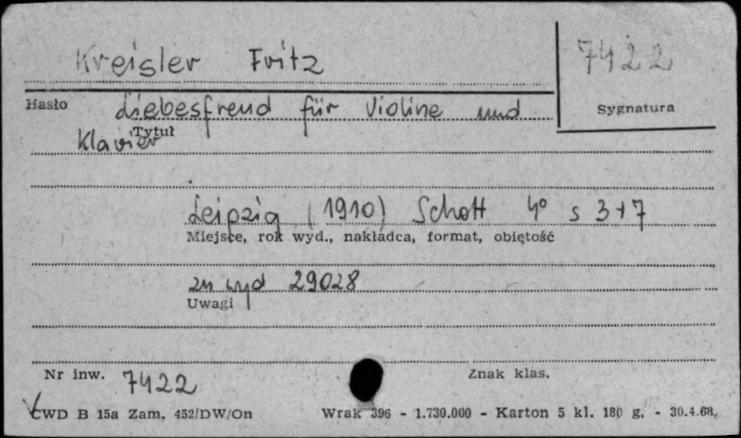 Kreisler Fritz 7422
Hasło Liebesfreud für Violine und Sygnatura
Tytuł
Klavier
Leipzig (1910) Schott 4° s 3+7
Miejsce, rok wyd., nakładca, format, objętość
zn wyd 29028
Uwagi
Nr inw. 7422 Znak klas.
CWD B 15a Zam. 452/DW/On Wrak 396 - 1.730.000 - Karton 5 kl. 180 g. - 30.4.68.